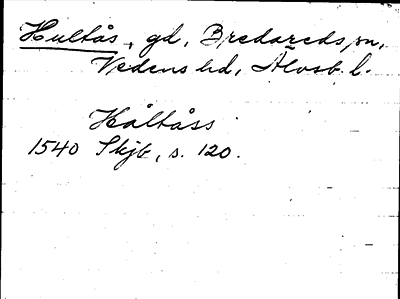 Hultås, gd, Bredareds sn,
Vedens hd, Älvsb. l.
Håltåss
1540 Skjb, s. 120.